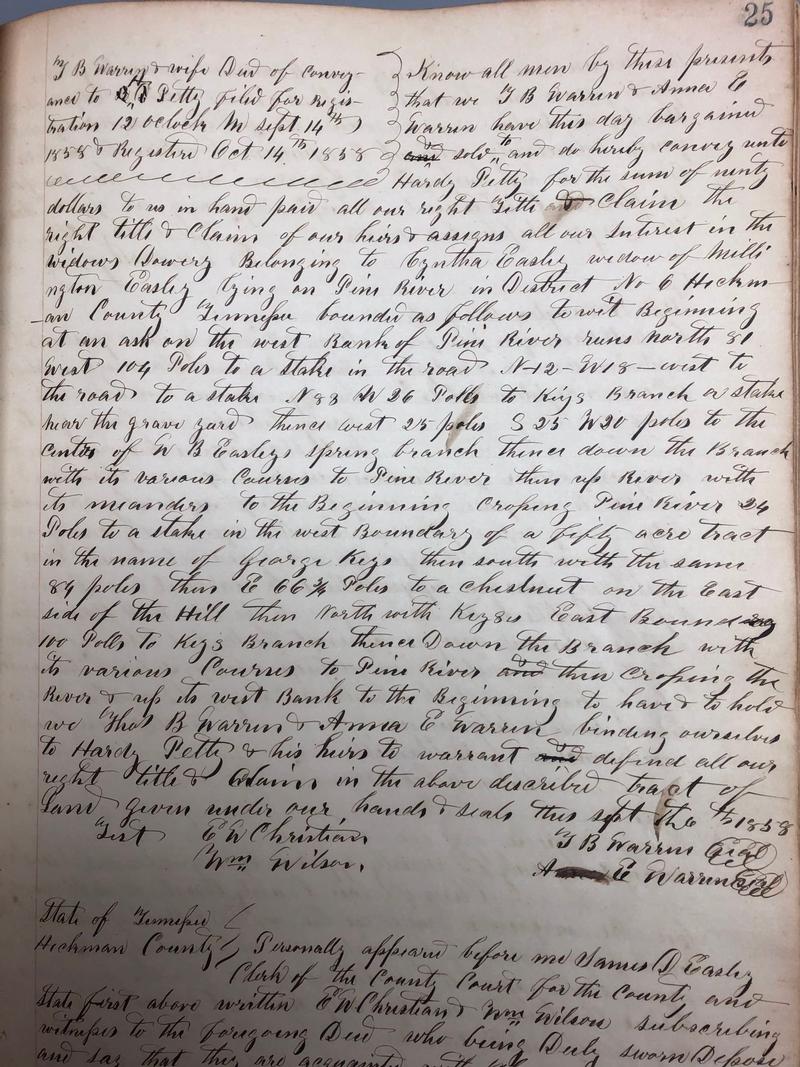 25
T B Warren & wife Deed of convey-
ance to Petty filed for regis-
tration 12 oclock M Sept. 14th
1858 & Registered Oct 14th 1858
Know all men by these presents
that we T B Warren & Anna E
Warren have this day bargained
and sold to and do hereby convey unto
Hardy Petty for the sum of ninty
dollars to us in hand paid all our right Title and Claim the
right title & Claim of our heirs & assigns all our Interest in the
widows Dowery Belonging to Cyntha Easley widow of Milli
ngton Easley lying on Pine River in District No 6 Hickm-
an County Tennessee bounded as follows towit Beginning
at an ash on the west Bank of Pine River runs north 81
West 104 Poles to a stake in the road N 12 - W 18 - west to
the road to a stake N 83 W 26 Poles to Keys Branch a stake
near the grave yard thence west 25 poles S 25 W 20 poles to the
center of W B Easleys spring branch thence down the Branch
with its various Courses to Pine River then up River with
its meanders to the Beginning Crossing Pine River 24
Poles to a stake in the west Boundary of a fifty acre tract
in the name of George Keys then south with the same
84 poles then E 66 3/4 Poles to a chestnut on the East
side of the Hill then North with Keyses East Boundary
100 Polls to Keys Branch thence Down the Branch with
its various Courses to Pine River and then Crossing the
River & up its west Bank to the Beginning to have & to hold
we Thos B Warren & Anna E Warren binding ourselves
to Hardy Petty & his heirs to warrant and defend all our
right title & Claim in the above described tract of
Land given under our hands & seals this Sept the 1858
Test E W Christian
Wm Wilson.
T B Warren Seal
E Warren Seal
State of Tennessee
Hickman County
Personally appeared before me James D Easley
Clerk of the County Court for the County and
State first above written E W Christian & Wm Wilson subscribing
witness to the foregoing Deed who being Duly sworn Depose
and say that they are acquainted with